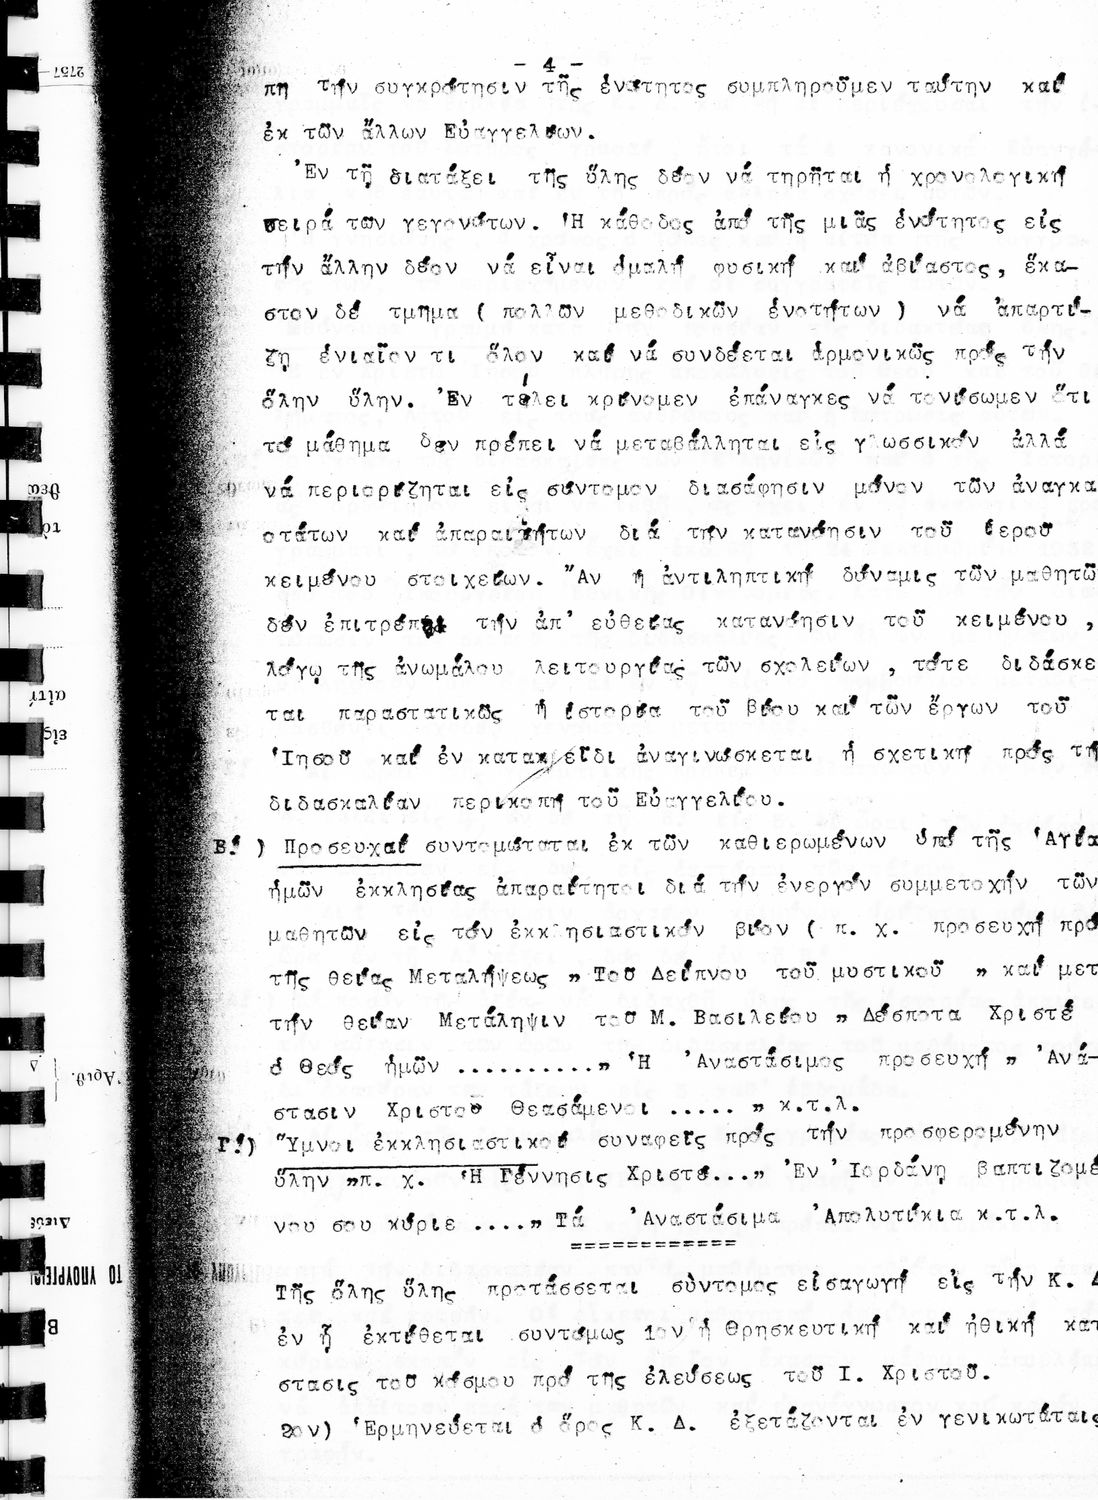 - 4 -
πη τήν συγκρότησιν τῆς ἑνότητος συμπληροῦμεν ταύτην καί
ἐκ τῶν ἄλλων Εὐαγγελίων.
Ἐν τῇ διατάξει τῆς ὕλης δέον νά τηρῆται ἡ χρονολογική
σειρά των γεγονότων. Ἡ κάθοδος ἀπό τῆς μιᾶς ἑνότητος εἰς
τήν ἄλλην δέον νά εἶναι ὁμαλή φυσική καί ἀβίαστος, ἕκα-
στον δέ τμημα ( πολλῶν μεθοδικῶν ἑνοτήτων ) νά ἀπαρτί-
ζῃ ἑνιαῖον τι ὅλον καί νά συνδέεται ἁρμονικῶς πρός τήν
ὅλην ὕλην. Ἐν τέλει κρίνομεν ἐπάναγκες νά τονίσωμεν ὅτι
τό μάθημα δεν πρέπει νά μεταβάλληται εἰς γλωσσικόν ἀλλά
νά περιορίζηται εἰς σύντομον διασάφησιν μόνον τῶν ἀναγκα
οτάτων καί ἀπαραιτήτων διά τήν κατανόησιν τοῦ ἱεροῦ
κειμένου στοιχείων. Ἄν ἡ ἀντιληπτική δύναμις τῶν μαθητῶ
δέν ἐπιτρέπει τήν ἀπ' εὐθείας κατανόησιν τοῦ κειμένου ,
λόγῳ τῆς ἀνωμάλου λειτουργίας τῶν σχολείων , τότε διδάσκε
ται παραστατικῶς ἡ ἱστορία τοῦ βίου καί τῶν ἔργων τοῦ
Ἰησοῦ καί ἐν κατακλεῖδι ἀναγινώσκεται ἡ σχετική πρός τή
διδασκαλίαν περικοπή τοῦ Εὐαγγελίου.
Β΄ ) Προσευχαί συντομώταται ἐκ τῶν καθιερωμένων ὑπό τῆς Ἁγία
ἡμῶν ἐκκλησίας ἀπαραίτητοι διά τήν ἐνεργόν συμμετοχήν τῶν
μαθητῶν εἰς τόν ἐκκλησιαστικόν βίον ( π. χ. προσευχή πρό
τῆς θείας Μεταλήψεως " Τοῦ Δείπνου τοῦ μυστικοῦ " καί μετ
τήν θείαν Μετάληψιν τοῦ Μ. Βασιλείου " Δέσποτα Χριστέ
ὁ Θεός ἡμῶν ..........." Ἡ Ἀναστάσιμος προσευχή " Ἀνά-
στασιν Χριστοῦ Θεασάμενοι ..... " κ.τ.λ.
Γ΄) Ὕμνοι ἐκκλησιαστικοί συναφεῖς πρός τήν προσφερομένην
ὕλην "π. χ. Ἡ Γέννησις Χριστέ..." Ἐν Ἰορδάνῃ βαπτιζομέ
νου σου κύριε ...." Τά Ἀναστάσιμα Ἀπολυτίκια κ.τ.λ.
=============
Τῆς ὅλης ὕλης προτάσσεται σύντομος εἰσαγωγή εἰς τήν Κ. Δ
ἐν ᾗ ἐκτίθεται συντόμως 1ον ἡ θρησκευτική καί ἠθική κατ
στασις τοῦ κόσμου πρό τῆς ἐλεύσεως τοῦ Ι. Χριστοῦ.
2ον) Ἑρμηνεύεται ὁ ὅρος Κ. Δ. ἐξετάζονται ἐν γενικωτάταις
2757
θεω
τό
αἰτή
εἰς
Ἀριθ.
Δ
Διεύθ
ΤΟ ΥΠΟΥΡΓΕΙΟ
Β